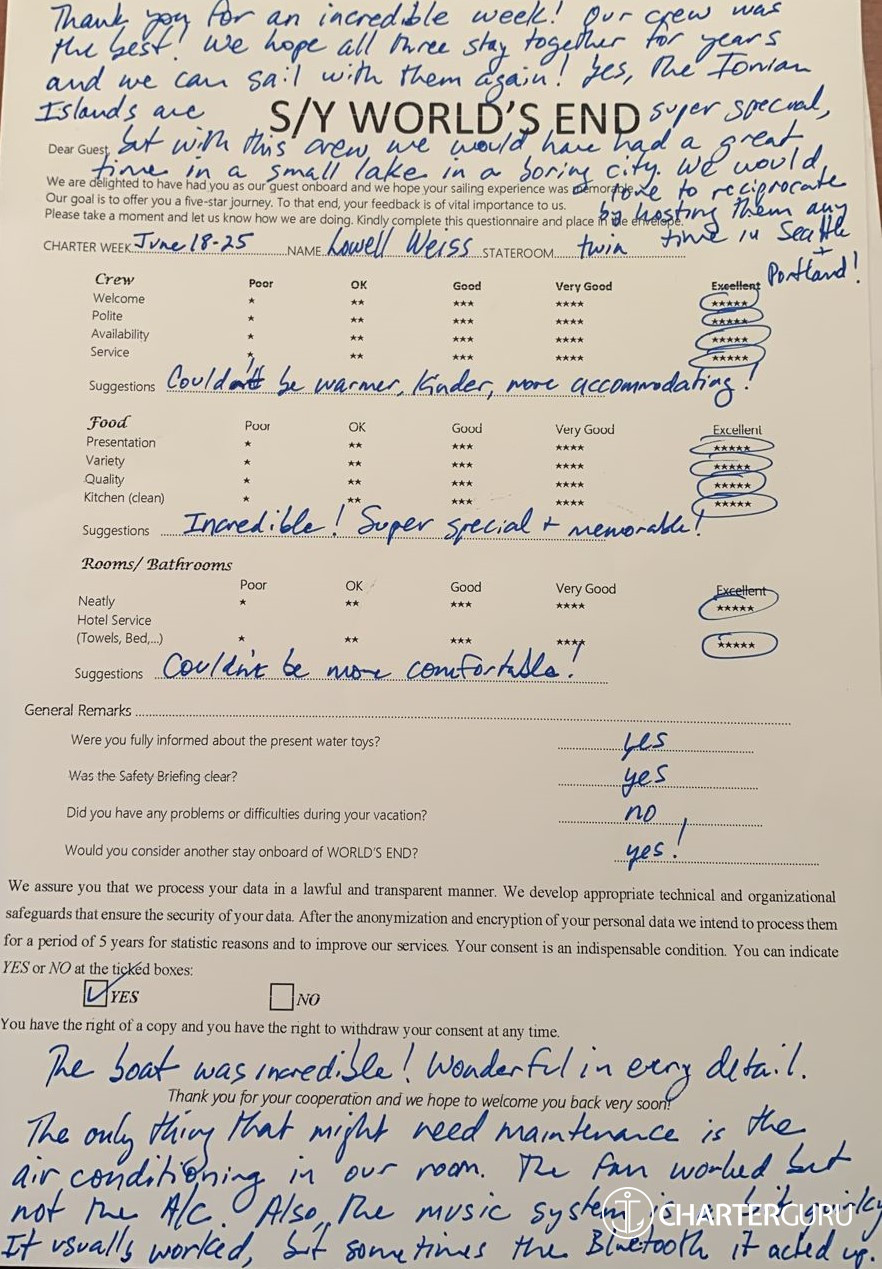 Thank you for an incredible week! Our crew was
the best! We hope all three stay together for years
and we can sail with them again! Yes, the Ionian
Islands are super special,
S/Y WORLD'S END
but with this crew we would have had a great
Dear Guest,
time in a small lake in a boring city. We would
We are delighted to have had you as our guest onboard and we hope your sailing experience was memorable.
love to reciprocate
Our goal is to offer you a five-star journey. To that end, your feedback is of vital importance to us.
by hosting them any
Please take a moment and let us know how we are doing. Kindly complete this questionnaire and place in the envelope.
time in Seattle
+
Portland!
CHARTER WEEK June 18-25 NAME Lowell Weiss STATEROOM twin
Crew Poor OK Good Very Good Excellent
Welcome ★ ★★ ★★★ ★★★★ ★★★★★
Polite ★ ★★ ★★★ ★★★★ ★★★★★
Availability ★ ★★ ★★★ ★★★★ ★★★★★
Service ★ ★★ ★★★ ★★★★ ★★★★★
Suggestions Couldn't be warmer, kinder, more accommodating!
Food Poor OK Good Very Good Excellent
Presentation ★ ★★ ★★★ ★★★★ ★★★★★
Variety ★ ★★ ★★★ ★★★★ ★★★★★
Quality ★ ★★ ★★★ ★★★★ ★★★★★
Kitchen (clean) ★ ★★ ★★★ ★★★★ ★★★★★
Suggestions Incredible! Super special + memorable!
Rooms/ Bathrooms
Poor OK Good Very Good Excellent
Neatly ★ ★★ ★★★ ★★★★ ★★★★★
Hotel Service
(Towels, Bed,...) ★ ★★ ★★★ ★★★★ ★★★★★
Suggestions Couldn't be more comfortable!
General Remarks
Were you fully informed about the present water toys? yes
Was the Safety Briefing clear? yes
Did you have any problems or difficulties during your vacation? no
Would you consider another stay onboard of WORLD'S END? yes!
We assure you that we process your data in a lawful and transparent manner. We develop appropriate technical and organizational
safeguards that ensure the security of your data. After the anonymization and encryption of your personal data we intend to process them
for a period of 5 years for statistic reasons and to improve our services. Your consent is an indispensable condition. You can indicate
YES or NO at the ticked boxes:
YES NO
You have the right of a copy and you have the right to withdraw your consent at any time.
The boat was incredible! Wonderful in every detail.
Thank you for your cooperation and we hope to welcome you back very soon!
The only thing that might need maintenance is the
air conditioning in our room. The fan worked but
not the A/C. Also, the music system is a bit quirky
CHARTERGURU
It usually worked, but sometimes the Bluetooth it acted up.